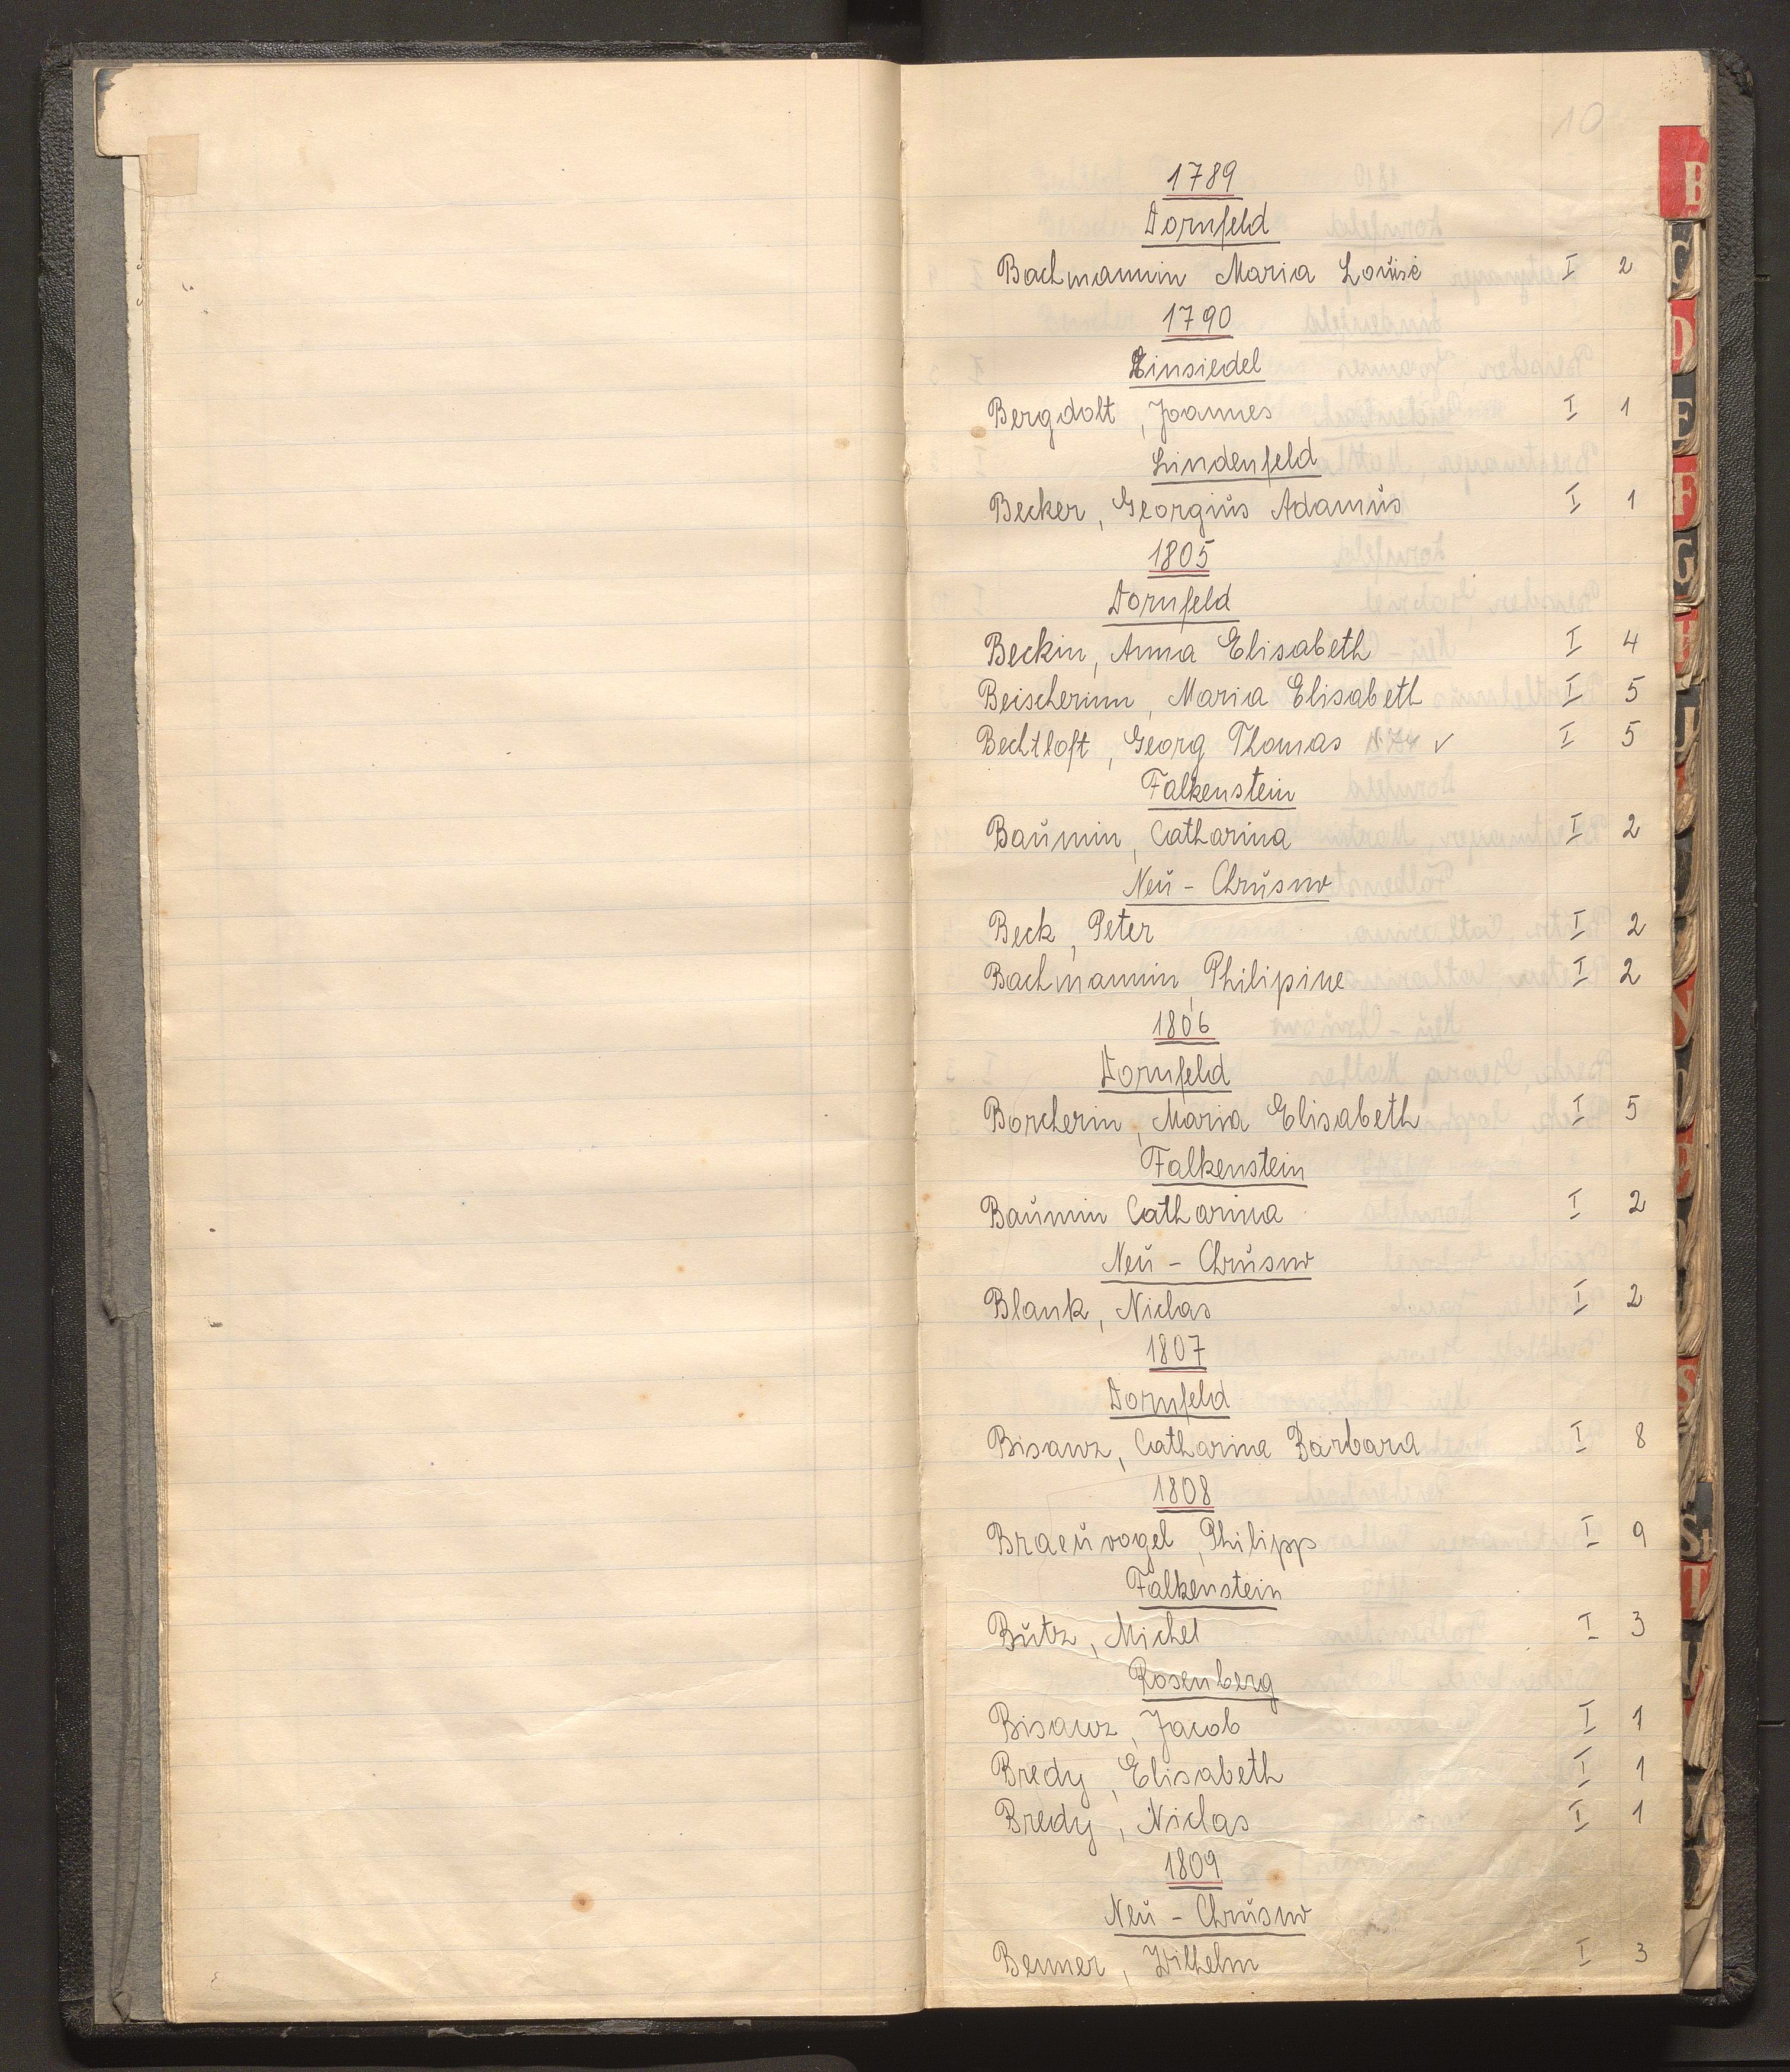 10
1789
Dornfeld
Bachmannin Maria Louise I 2
1790
Einsiedel
Bergdolt, Joannes I 1
Lindenfeld
Becker, Georgius Adamus I 1
1805
Dornfeld
Beckin, Anna Elisabeth I 4
Beischerinn, Maria Elisabeth I 5
Bechtloft, Georg Thomas ✓ I 5
Falkenstein
Baumin, Catharina I 2
Neu - Chrusno
Beck, Peter I 2
Bachmannin, Philipine I 2
1806
Dornfeld
Borcherin, Maria Elisabeth I 5
Falkenstein
Baumin Catharina I 2
Neu - Chrusno
Blank, Niclas I 2
1807
Dornfeld
Bisanz, Catharina Barbara I 8
1808
Braeuvogel, Philipp I 9
Falkenstein
Butz, Michel I 3
Rosenberg
Bisanz, Jacob I 1
Bredy, Elisabeth I 1
Bredy, Niclas I 1
1809
Neu - Chrusno
Benner, Wilhelm I 3
B
C
D
E
F
G